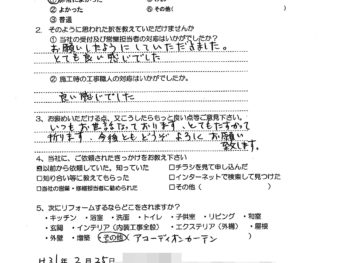 ② よかった ⑤ その他（
③ 普通
2. そのように思われた訳を教えていただけませんか
① 当社の受付及び営業担当者の対応はいかがでしたか？
お願いしたようにしていただきました。
とても良い感じでした
② 施工時の工事職人の対応はいかがでしたか。
良い感じでした
3. お褒めいただける点、又こうしたらもっと良い点等ご意見下さい。
いつもお世話なっております、とてもたすかって
折ります、今後ともどうぞよろしくお願い
致します。
4. 当社に、ご依頼されたきっかけをお教え下さい
以前から依頼していた。知っていた □チラシを見て申し込んだ
□知り合い等に教えてもらった □インターネットで検索して見つけた
□当社の営業・修繕担当者に勧められた □その他（
5. 次にリフォームするならどこをされますか？
・キッチン ・浴室 ・洗面 ・トイレ ・子供室 ・リビング ・和室
・玄関 ・インテリア（内装工事全般） ・エクステリア（外構） ・屋根
・外壁 ・増築 ・その他 アコーディオンカーテン
H31年2月25日